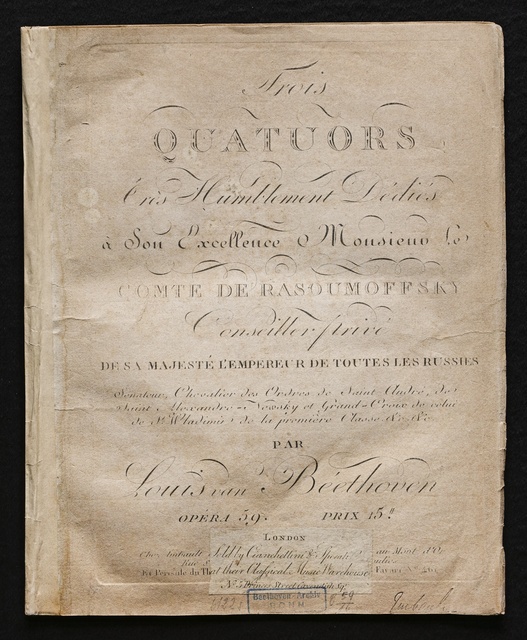 Trois
QUATUORS
très Humblement Dédiés
à Son Excellence Monsieur le
COMTE DE RASOUMOFFSKY
Conseiller privé
DE SA MAJESTÉ L'EMPEREUR DE TOUTES LES RUSSIES
Senateur, Chevalier des Ordres de Saint André, de
Saint Alexandre-Newsky et Grand-Croix de celui
de St Wladimir de la première Classe &c. &c.
PAR
Louis van Béethoven
OPÉRA 59. PRIX 15.
LONDON
Chez Sold by Cianchettini & Sperati au Mont
Rue
Et Percée du That their Classical Music Warehouse Favart No. 461
No. 5 Princes Street Cavendish Sq.
Beethoven Archiv
BONN
59